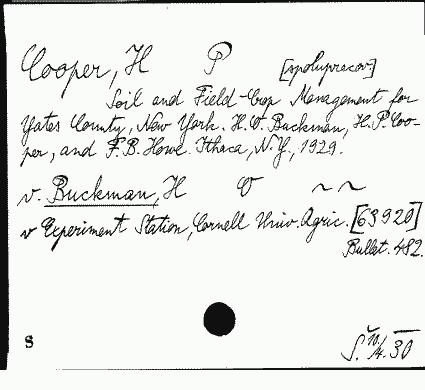 Cooper, H P [spolupracov.]
Soil and Field-Crop Management for
Yates County, New York. H. O. Buckman, H. P. Coo-
per, and F. B. Howe. Ithaca, N. Y., 1929.
v. Buckman, H O ~ ~
v Experiment Station, Cornell Univ. Agric. [63920]
Bullet. 482.
8